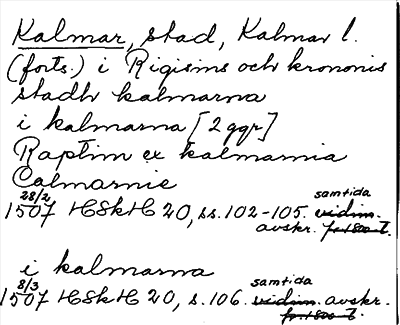 Kalmar, stad, Kalmar l.
(forts.) i Rigisins och krononis
stadh kalmarna
i kalmarna [2 ggr]
Raptim ex kalmarnia
Calmarnie
28/2 samtida
1507 HSkH 20, ss. 102-105. vidim.
avskr. fr. 1800-t.
i kalmarna
8/3 samtida
1507 HSkH 20, s. 106. vidim. avskr.
fr. 1800-t.